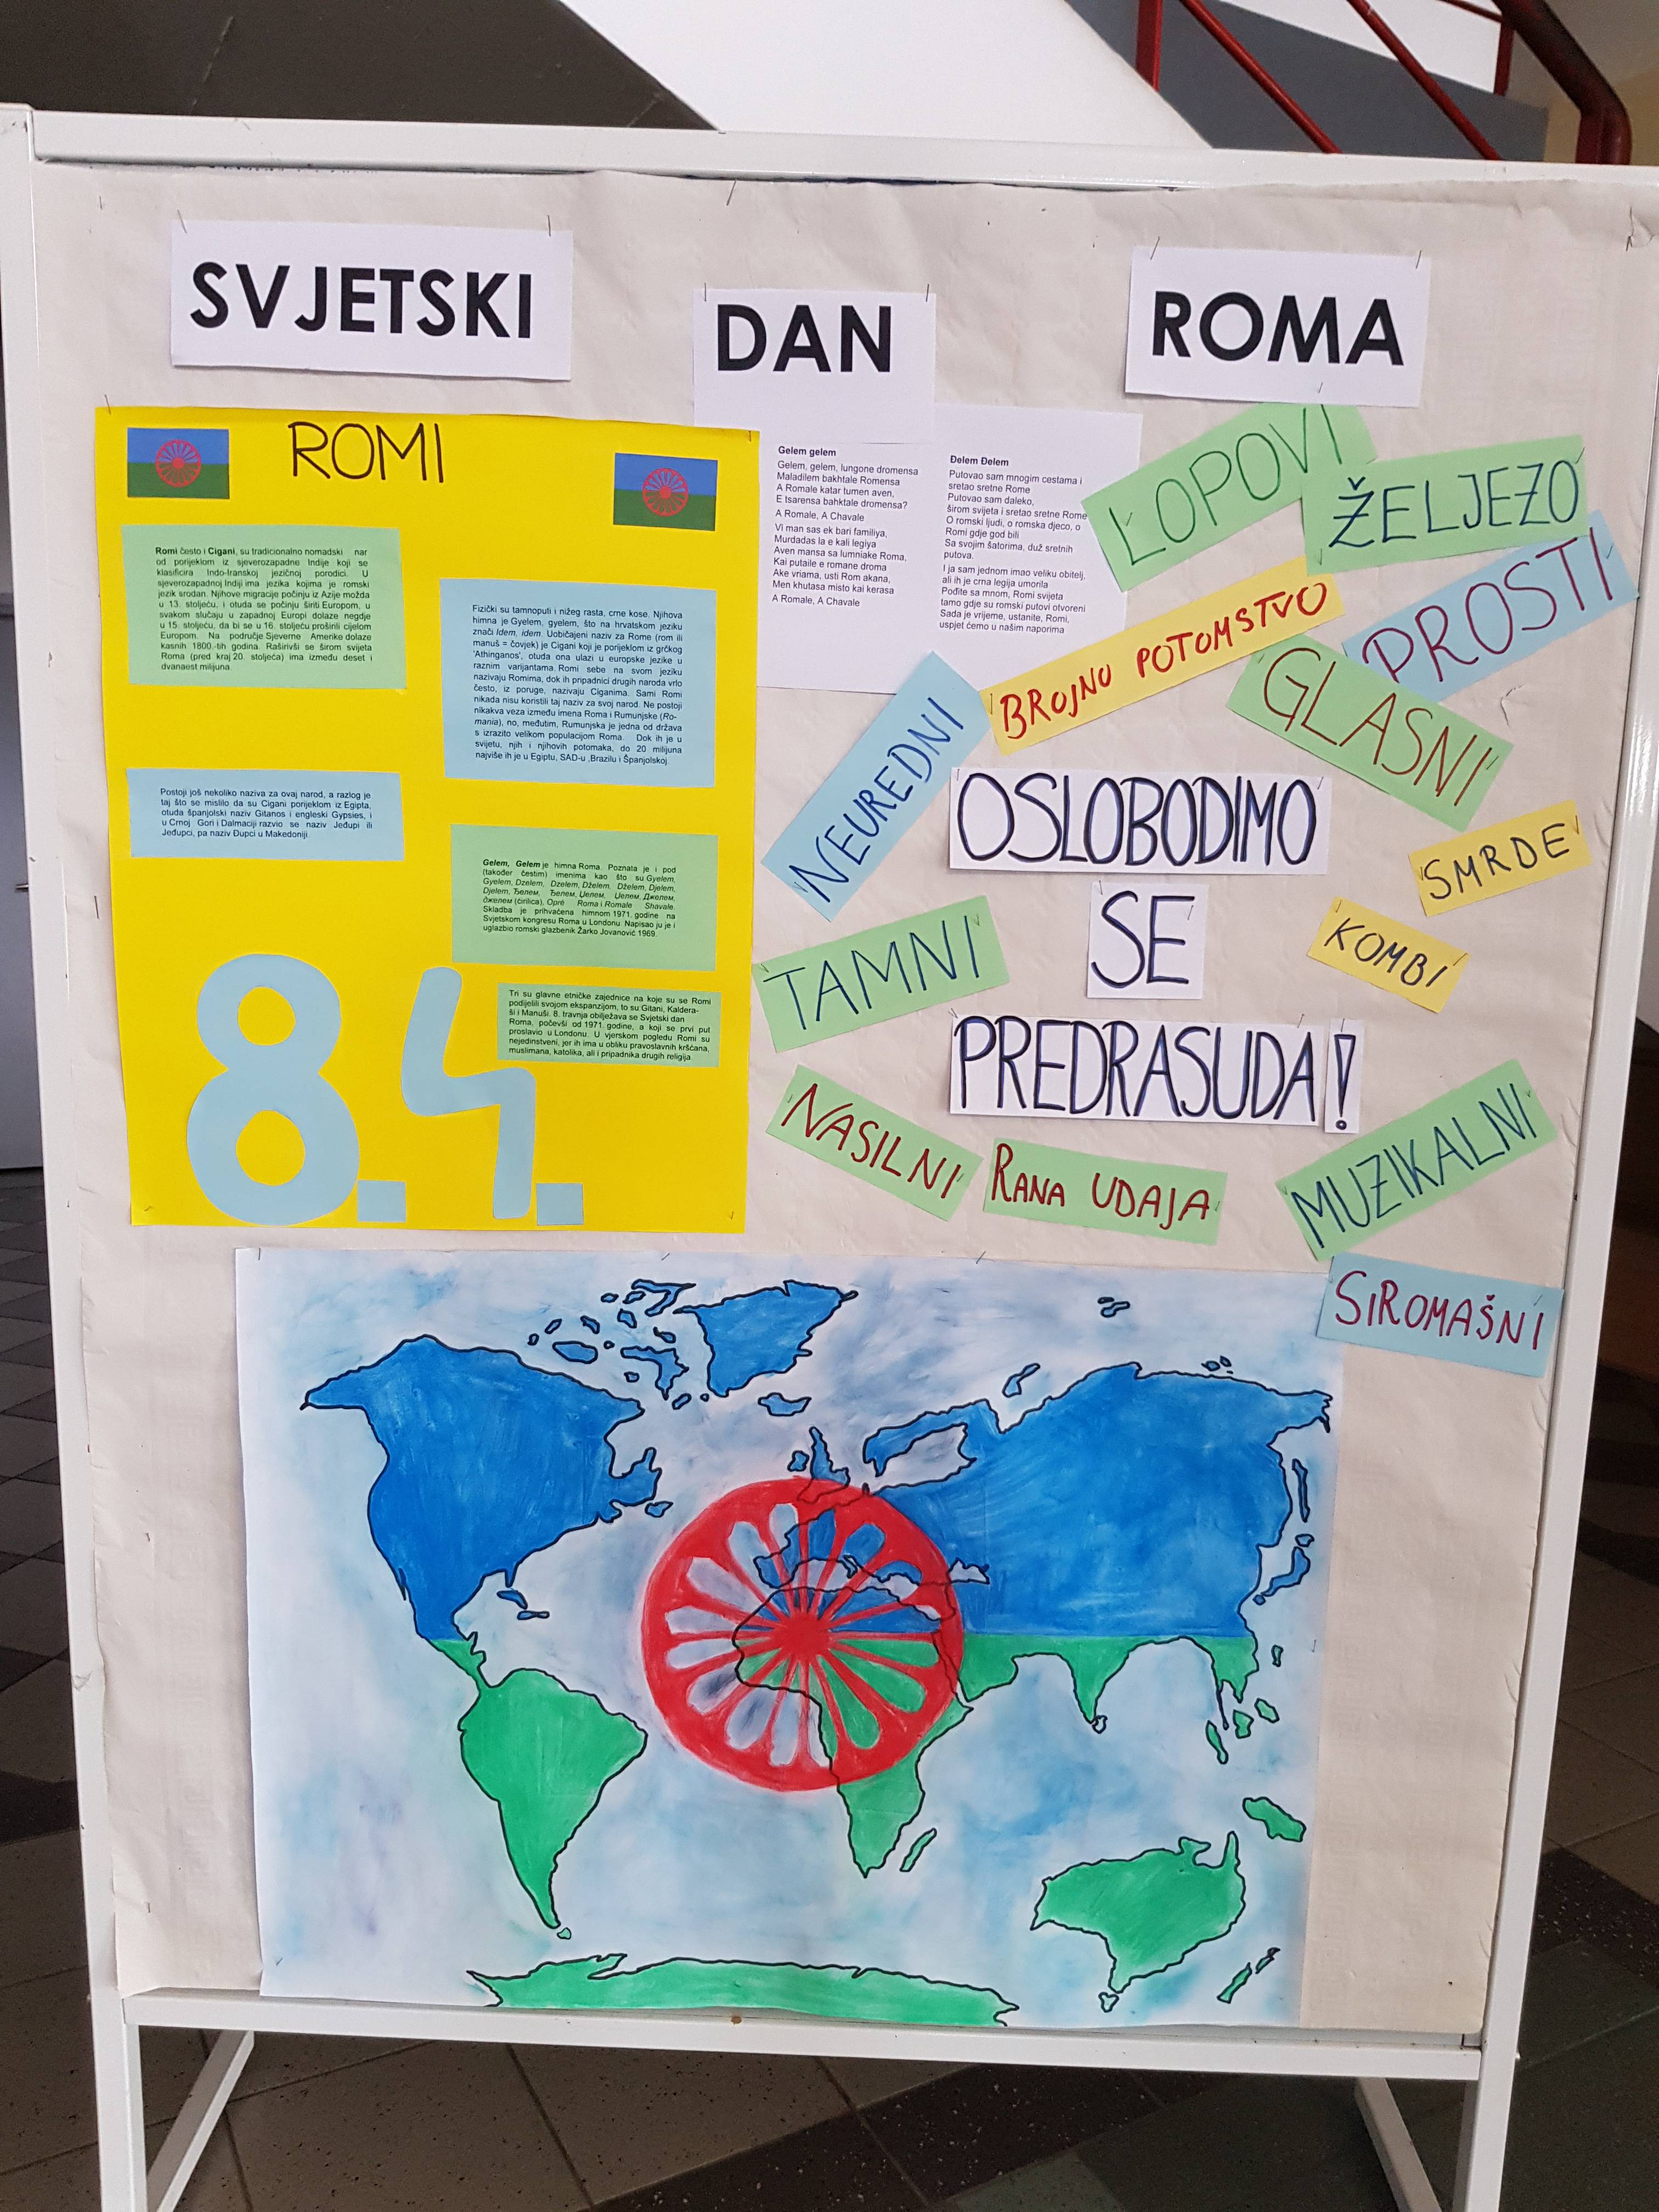 SVJETSKI
DAN
ROMA
ROMI
Romi često i Cigani, su tradicionalno nomadski nar
od porijeklom iz sjeverozapadne Indije koji se
klasificira Indo-Iranskoj jezičnoj porodici. U
sjeverozapadnoj Indiji ima jezika kojima je romski
jezik srodan. Njihove migracije počinju iz Azije možda
u 13. stoljeću, i otuda se počinju širiti Europom, u
svakom slučaju u zapadnoj Europi dolaze negdje
u 15. stoljeću, da bi se u 16. stoljeću proširili cijelom
Europom. Na područje Sjeverne Amerike dolaze
kasnih 1800.-tih godina. Raširivši se širom svijeta
Roma (pred kraj 20. stoljeća) ima između deset i
dvanaest milijuna.
Fizički su tamnoputi i nižeg rasta, crne kose. Njihova
himna je Gyelem, gyelem, što na hrvatskom jeziku
znači Idem, idem. Uobičajeni naziv za Rome (rom ili
manuš = čovjek) je Cigani koji je porijeklom iz grčkog
'Athinganos', otuda ona ulazi u europske jezike u
raznim varijantama. Romi sebe na svom jeziku
nazivaju Romima, dok ih pripadnici drugih naroda vrlo
često, iz poruge, nazivaju Ciganima. Sami Romi
nikada nisu koristili taj naziv za svoj narod. Ne postoji
nikakva veza između imena Roma i Rumunjske (Ro-
mania), no, međutim, Rumunjska je jedna od država
s izrazito velikom populacijom Roma. Dok ih je u
svijetu, njih i njihovih potomaka, do 20 milijuna
najviše ih je u Egiptu, SAD-u ,Brazilu i Španjolskoj.
Postoji još nekoliko naziva za ovaj narod, a razlog je
taj što se mislilo da su Cigani porijeklom iz Egipta,
otuda španjolski naziv Gitanos i engleski Gypsies, i
u Crnoj Gori i Dalmaciji razvio se naziv Jeđupi ili
Jeđupci, pa naziv Đupci u Makedoniji.
Gelem, Gelem je himna Roma. Poznata je i pod
(također čestim) imenima kao što su Gyelem,
Gyelem, Dzelem, Dzelem, Dželem, Dželem, Djelem,
Djelem, Ђелем, Ђелем, Џелем, Џелем, Джелем,
джелем (ćirilica), Opré Roma i Romale Shavale.
Skladba je prihvaćena himnom 1971. godine na
Svjetskom kongresu Roma u Londonu. Napisao ju je i
uglazbio romski glazbenik Žarko Jovanović 1969.
Tri su glavne etničke zajednice na koje su se Romi
podijelili svojom ekspanzijom, to su:Gitani, Kaldera-
ši i Manuši. 8. travnja obilježava se Svjetski dan
Roma, počevši od 1971. godine, a koji se prvi put
proslavio u Londonu. U vjerskom pogledu Romi su
nejedinstveni, jer ih ima u obliku pravoslavnih kršćana,
muslimana, katolika, ali i pripadnika drugih religija.
8.4.
Gelem gelem
Gelem, gelem, lungone dromensa
Maladilem bakhtale Romensa
A Romale katar tumen aven,
E tsarensa bahktale dromensa?
A Romale, A Chavale
Vi man sas ek bari familiya,
Murdadas la e kali legiya
Aven mansa sa lumniake Roma,
Kai putaile e romane droma
Ake vriama, usti Rom akana,
Men khutasa misto kai kerasa
A Romale, A Chavale
Đelem Đelem
Putovao sam mnogim cestama i
sretao sretne Rome
Putovao sam daleko,
širom svijeta i sretao sretne Rome
O romski ljudi, o romska djeco, o
Romi gdje god bili
Sa svojim šatorima, duž sretnih
putova.
I ja sam jednom imao veliku obitelj,
ali ih je crna legija umorila
Pođite sa mnom, Romi svijeta
tamo gdje su romski putovi otvoreni
Sada je vrijeme, ustanite, Romi,
uspjet ćemo u našim naporima
LOPOVI
ŽELJEZO
PROSTI
BROJNO POTOMSTVO
GLASNI
NEUREDNI
OSLOBODIMO
SE
PREDRASUDA!
SMRDE
KOMBI
TAMNI
NASILNI
RANA UDAJA
MUZIKALNI
SIROMAŠNI